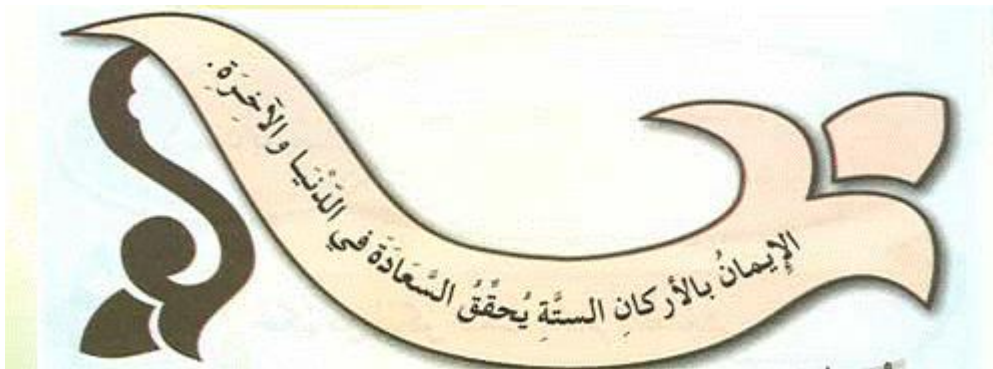 الإيمانُ بالأركانِ الستَّةِ يُحقِّقُ السَّعَادَةَ في الدُّنْيَا والآخِرَةِ .